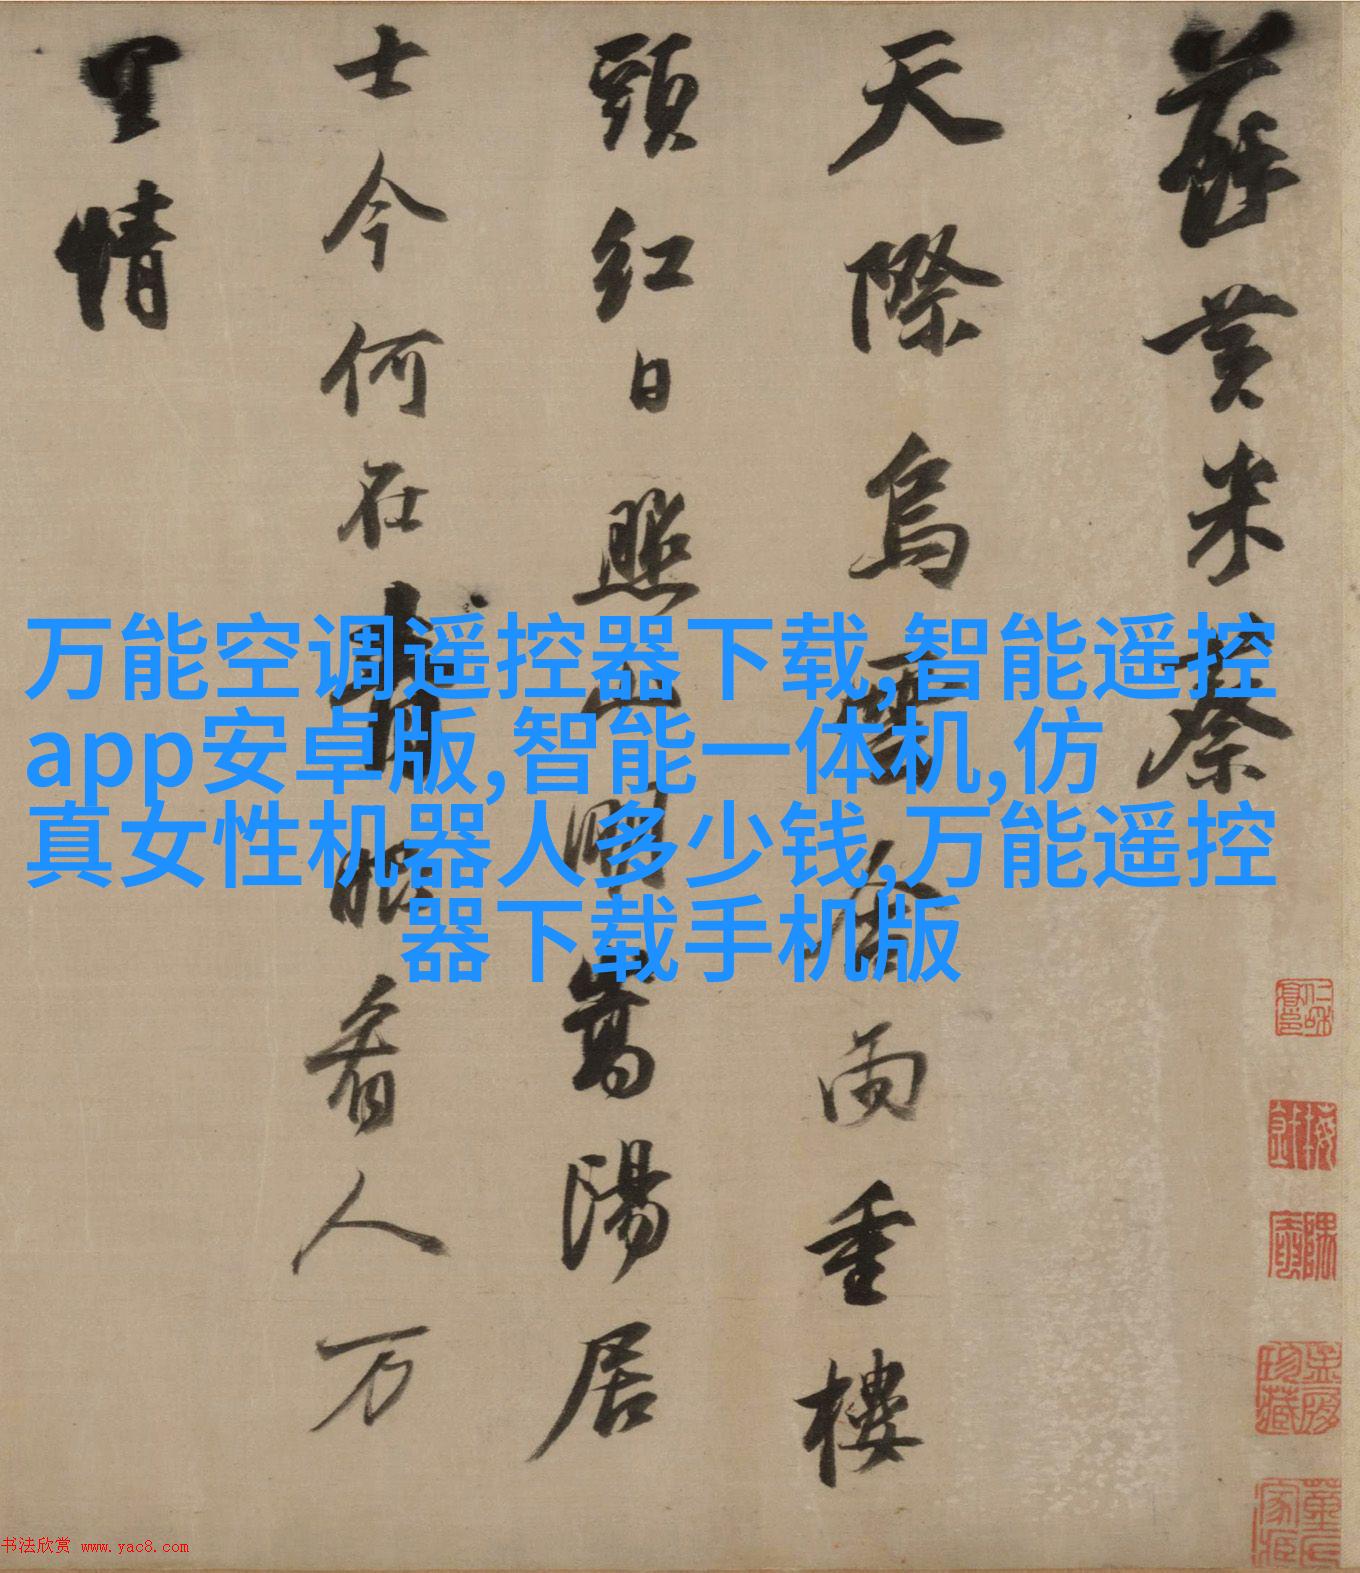 蘇黄米蔡
天際烏雲含雨重樓
頭紅日照山明嵩陽居
士今何在青眼看人万
里情
万能空调遥控器下载,智能遥控
app安卓版,智能一体机,仿
真女性机器人多少钱,万能遥控
器下载手机版
书法欣赏 www.yac8.com